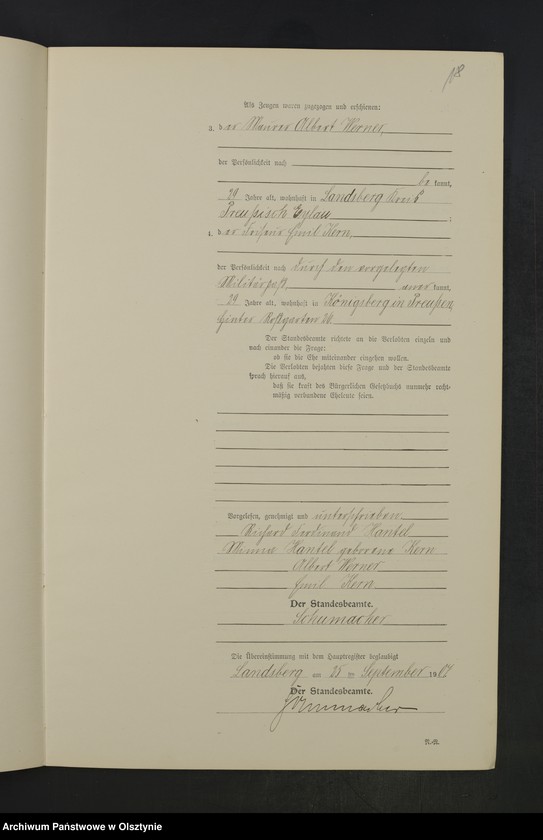 Als Zeugen waren zugezogen und erschienen:
3. der Maurer Albert Werner,
der Persönlichkeit nach
be kannt,
29 Jahre alt, wohnhaft in Landsberg Kreis
Preußisch Eylau ;
4. der Friseur Emil Kern,
der Persönlichkeit nach durch den vorgelegten
Militärpaß aner kannt,
29 Jahre alt, wohnhaft in Königsberg in Preußen,
Hinter Roßgarten
Der Standesbeamte richtete an die Verlobten einzeln und
nach einander die Frage:
ob sie die Ehe miteinander eingehen wollen.
Die Verlobten bejahten diese Frage und der Standesbeamte
sprach hierauf aus,
daß sie kraft des Bürgerlichen Gesetzbuchs nunmehr recht-
mäßig verbundene Eheleute seien.
Vorgelesen, genehmigt und unterschrieben.
Richard Ferdinand Hantel
Minna Hantel geborene Kern
Albert Werner
Emil Kern
Der Standesbeamte.
Schumacher
Die Übereinstimmung mit dem Hauptregister beglaubigt
Landsberg am 25 ten September 19
Der Standesbeamte.
Schumacher
Archiwum Państwowe w Olsztynie